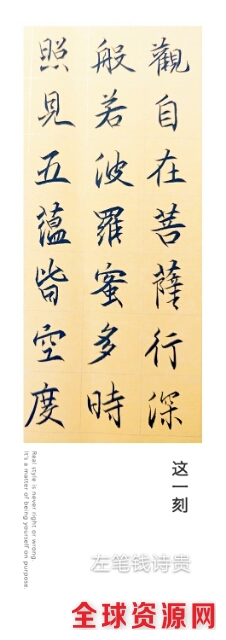 觀自在菩薩行深
般若波羅蜜多時
照見五蘊皆空度
这一刻
Real style is never right or wrong
It's a matter of being yourself on purpose
左笔钱诗贵
全球资源网